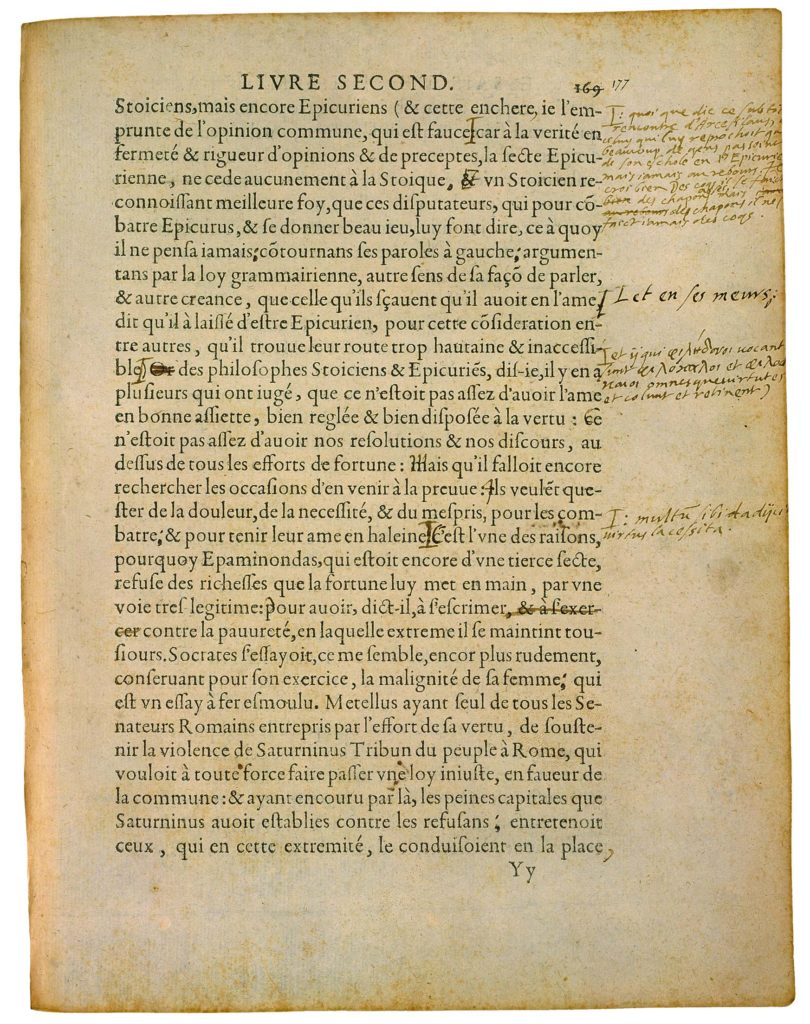 LIVRE SECOND. 169 177
Stoiciens, mais encore Epicuriens (& cette enchere, ie l'em-
prunte de l'opinion commune, qui est fauce car à la verité en
fermeté & rigueur d'opinions & de preceptes, la secte Epicu-
rienne, ne cede aucunement à la Stoique, & vn Stoicien re-
connoissant meilleure foy, que ces disputateurs, qui pour cō-
batre Epicurus, & se donner beau ieu, luy font dire, ce à quoy
il ne pensa iamais; cōtournans ses paroles à gauche; argumen-
tans par la loy grammairienne, autre sens de sa façō de parler,
& autre creance, que celle qu'ils sçauent qu'il auoit en l'ame,
dit qu'il à laissé d'estre Epicurien, pour cette cōsideration en-
tre autres, qu'il trouue leur route trop hautaine & inaccessi-
ble des philosophes Stoiciens & Epicuriēs, dis-ie, il y en a
plusieurs qui ont iugé, que ce n'estoit pas assez d'auoir l'ame
en bonne assiette, bien reglée & bien disposée à la vertu: Ce
n'estoit pas assez d'auoir nos resolutions & nos discours, au
dessus de tous les efforts de fortune: Mais qu'il falloit encore
rechercher les occasions d'en venir à la preuue: Ils veulēt que-
ster de la douleur, de la necessité, & du mespris, pour les com-
batre, & pour tenir leur ame en haleine C'est l'vne des raisons,
pourquoy Epaminondas, qui estoit encore d'vne tierce secte,
refuse des richesses que la fortune luy met en main, par vne
voie tres legitime: Pour auoir, dict-il, à s'escrimer, & à s'exer-
cer contre la pauureté, en laquelle extreme il se maintint tou-
siours. Socrates s'essayoit, ce me semble, encor plus rudement,
conseruant pour son exercice, la malignité de sa femme; qui
est vn essay à fer esmoulu. Metellus ayant seul de tous les Se-
nateurs Romains entrepris par l'effort de sa vertu, de souste-
nir la violence de Saturninus Tribun du peuple à Rome, qui
vouloit à toute force faire passer vne loy iniuste, en faueur de
la commune: & ayant encouru par là, les peines capitales que
Saturninus auoit establies contre les refusans; entretenoit
ceux, qui en cette extremité, le conduisoient en la place,
Yy
quoi que die ce subtil
rencontre d'Arcesilaus,
luy reprochoit que
beaucoup de gens passoient
de son eschole en l'Epicuriene
mais iamais au rebours
croi bien Des coqs il se
bien des chapons mais
des chapons il ne
faict iamais des coqs.
et en ses meurs,
et ii qui φιλήδονοι vocantur
sunt φιλόκαλοι et φιλο
omnesque virtutes
et colunt et retinent)
multū sibi adijcit
virtus lacessita.